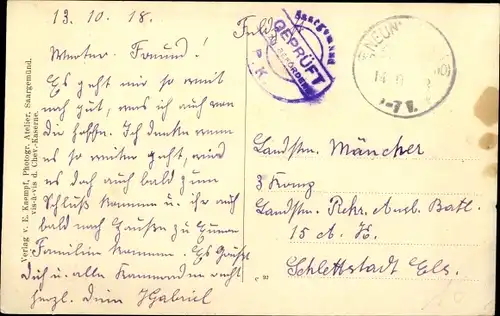 13. 10. 18.
Werter Freund!
Es geht mir so weit
noch gut, was ich auch von
Dir hoffe. Ich denke wenn
es so weiter geht, wird
es doch auch bald zum
Schluß kommen u. ihr auch
bald nach Hause zu Euren
Familien kommen. Es Grüßt
Dich u. alle Kameraden recht
herzl. Dein Gabriel
Verlag v. E. Kaempf, Photogr. Atelier, Saargemünd.
vis-à-vis d. Chev.-Kaserne.
Saargemünd
GEPRÜFT
P. K.
Landstm. Männcher
3 Komp
Landstm. Rekr. Ausb. Batl.
15 A. K.
Schlettstadt Els.